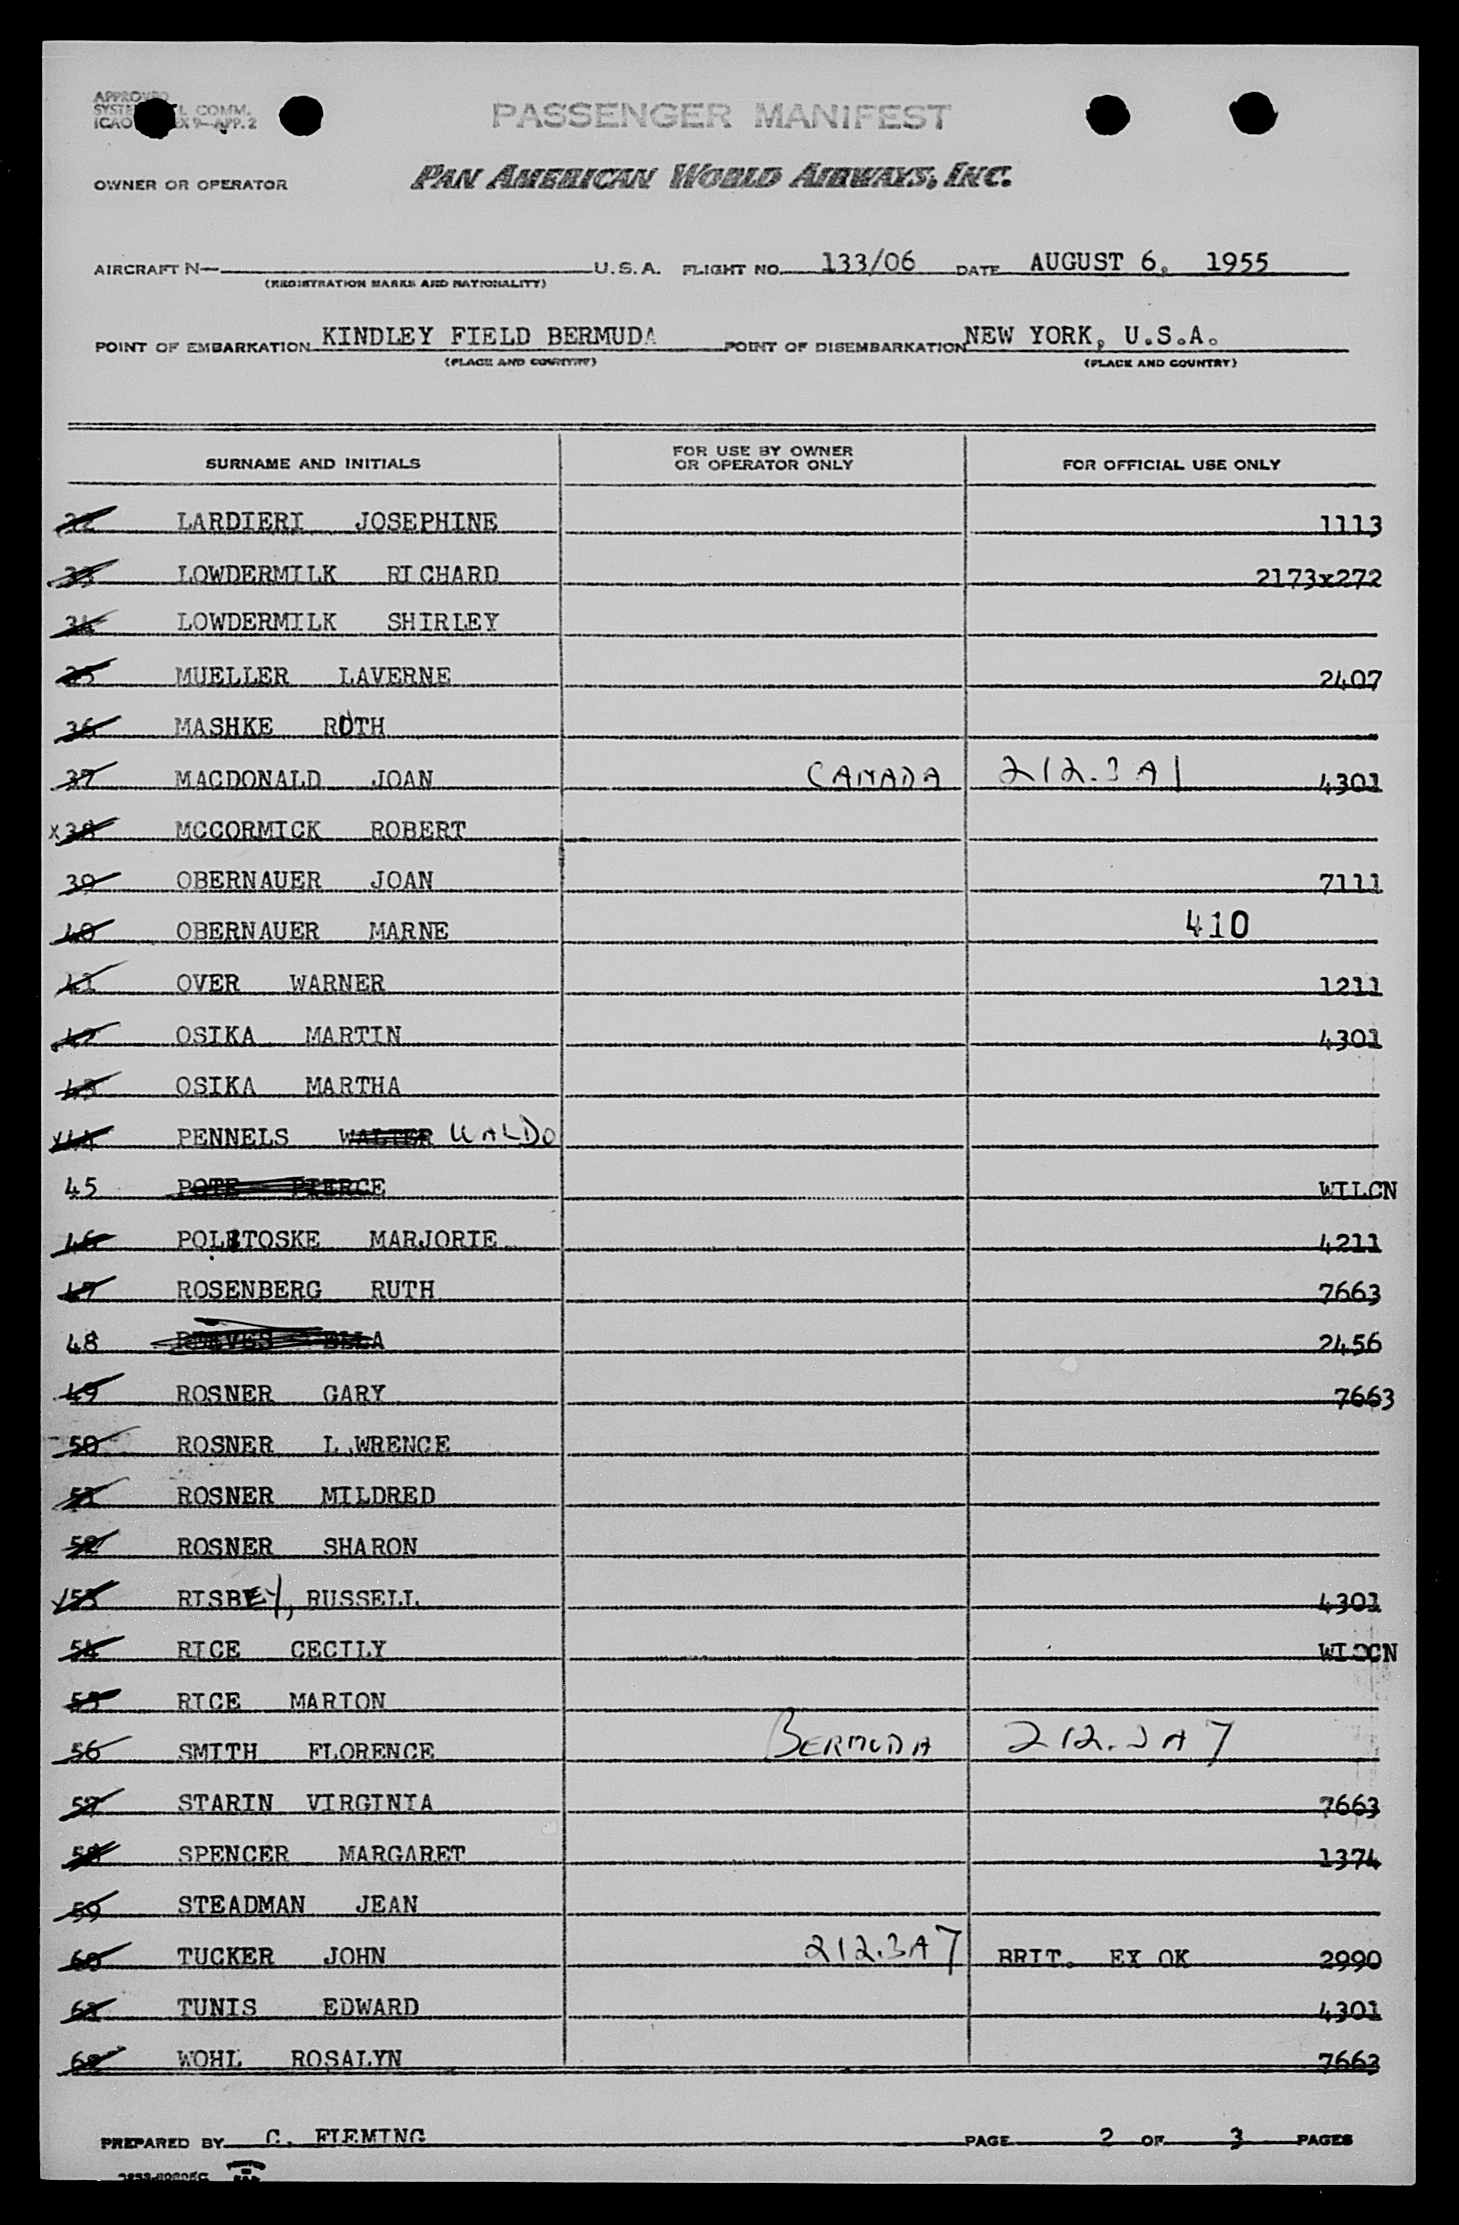 PASSENGER MANIFEST
OWNER OR OPERATOR PAN AMERICAN WORLD AIRWAYS, INC.
AIRCRAFT N— U.S.A. FLIGHT NO. 133/06 DATE AUGUST 6, 1955
(REGISTRATION MARKS AND NATIONALITY)
POINT OF EMBARKATION KINDLEY FIELD BERMUDA POINT OF DISEMBARKATION NEW YORK, U.S.A.
(PLACE AND COUNTRY) (PLACE AND COUNTRY)
SURNAME AND INITIALS FOR USE BY OWNER OR OPERATOR ONLY FOR OFFICIAL USE ONLY
32 LARDIERI JOSEPHINE 1113
33 LOWDERMILK RICHARD 2173x272
34 LOWDERMILK SHIRLEY
35 MUELLER LAVERNE 2407
36 MASHKE RUTH
37 MACDONALD JOAN CANADA 212.3 A1 4301
x38 MCCORMICK ROBERT
39 OBERNAUER JOAN 7111
40 OBERNAUER MARNE 410
41 OVER WARNER 1211
42 OSIKA MARTIN 4301
43 OSIKA MARTHA
44 PENNELS WALTER WALDO
45 POTE PIERCE WILCN
46 POLITOSKE MARJORIE 4211
47 ROSENBERG RUTH 7663
48 ELLA 2456
49 ROSNER GARY 7663
50 ROSNER L WRENCE
51 ROSNER MILDRED
52 ROSNER SHARON
53 RISBEY, RUSSELL 4301
54 RICE CECILY
55 RICE MARION
56 SMITH FLORENCE BERMUDA 212.3 A7
57 STARIN VIRGINIA 7663
58 SPENCER MARGARET 1374
59 STEADMAN JEAN
60 TUCKER JOHN 212.3A7 BRIT. EX OK 2990
61 TUNIS EDWARD 4301
62 WOHL ROSALYN 7663
PREPARED BY C. FLEMING PAGE 2 OF 3 PAGES